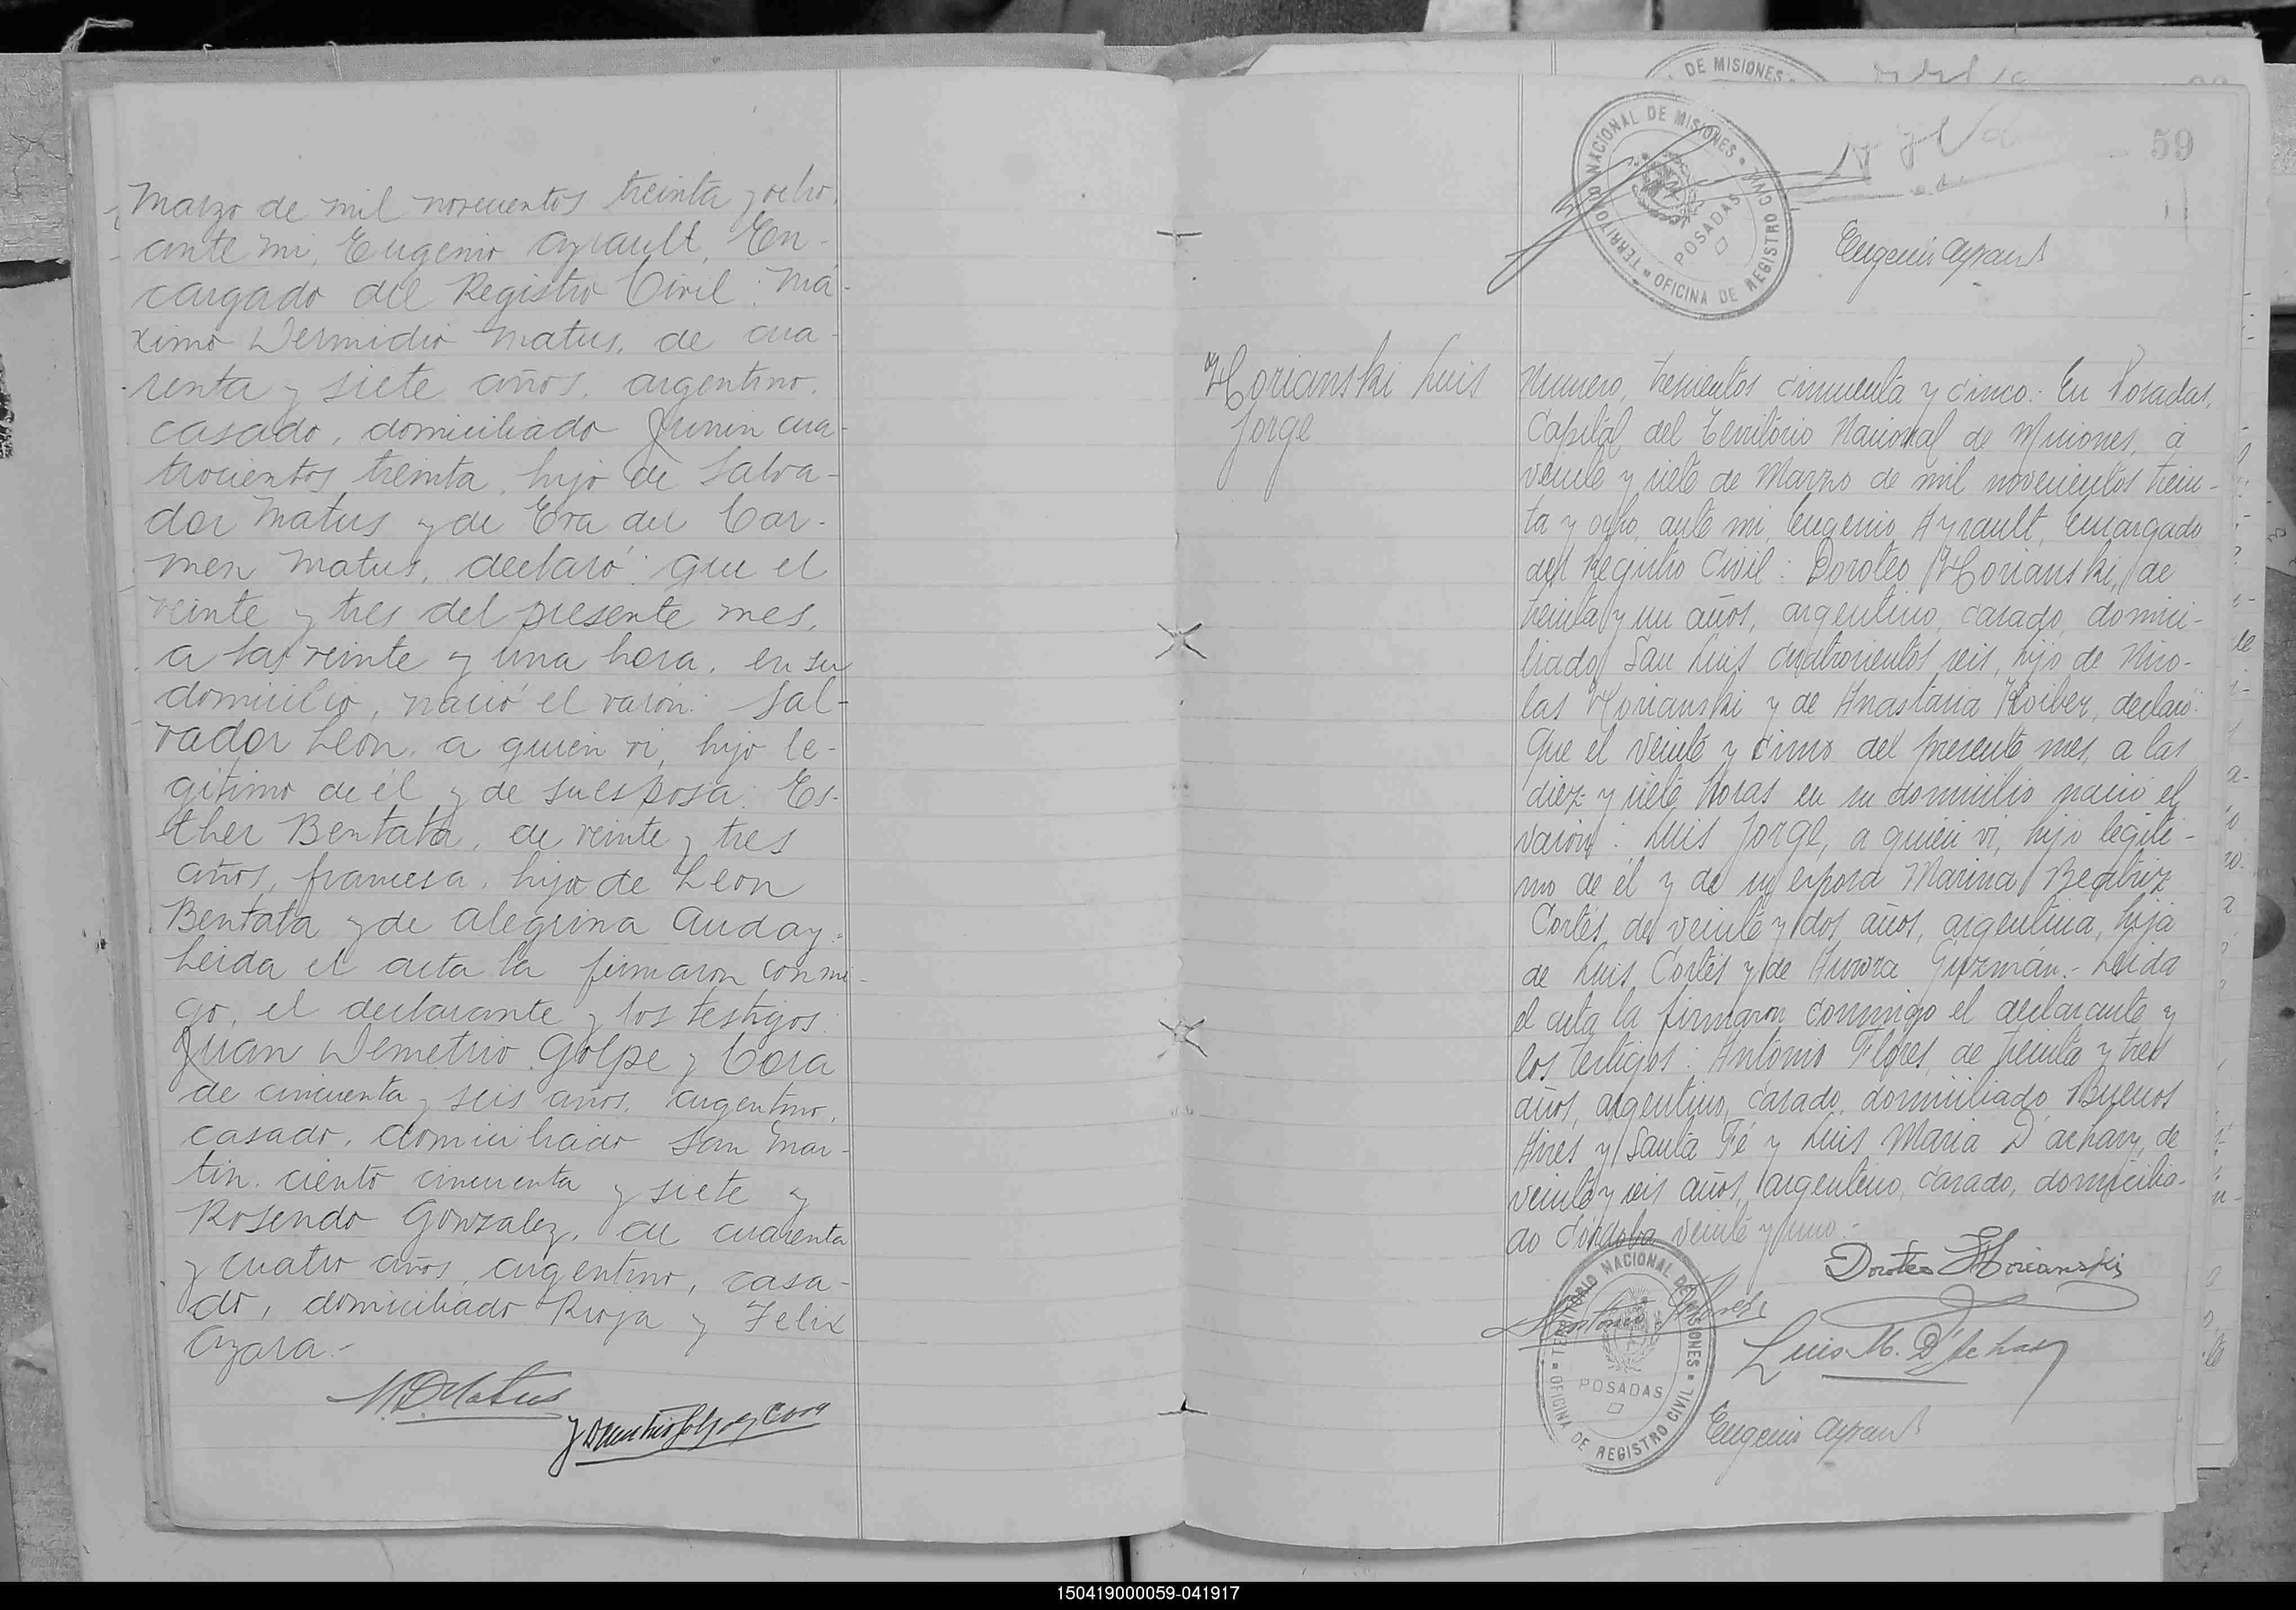 Marzo de mil novecientos treinta y ocho,
ante mi, Eugenio Ayrault, En-
cargado del Registro Civil: Má-
ximo Dermidio Matus, de cua-
renta y siete años, argentino,
casado, domiciliado Junin cua-
trocientos treinta, hijo de Salva-
dor Matus y de Eva del Car-
men Matus, declaró: que el
veinte y tres del presente mes,
a las veinte y una hora, en su
domicilio, nació el varón: Sal-
vador Leon, a quien vi, hijo le-
gitimo de él y de su esposa: Es-
ther Bentata, de veinte y tres
años, francesa, hija de Leon
Bentata y de Alegrina Auday.-
Leida el acta la firmaron conmi-
go, el declarante y los testigos:
Juan Demetrio Golpe y Cora
de cincuenta y seis años, argentino,
casado, domiciliado San Mar-
tin ciento cincuenta y siete y
Rosendo Gonzalez, de cuarenta
y cuatro años, argentino, casa-
do, domiciliado Rioja y Felix
Azara.-
M D Matus
J Demetrio Golpe y Cora
DE MISIONES
TERRITORIO NACIONAL DE MISIONES
POSADAS
OFICINA DE REGISTRO CIVIL
59
Eugenio Ayrault
Horianski Luis
Jorge
Numero, trescientos cincuenta y cinco.- En Posadas,
Capital del Territorio Nacional de Misiones, a
veinte y siete de Marzo de mil novecientos trein-
ta y ocho, ante mi, Eugenio Ayrault, Encargado
del Registro Civil: Doroteo Horianski, de
treinta y un años, argentino, casado, domici-
liado San Luis cuatrocientos seis, hijo de Nico-
las Horianski y de Anastasia Koiber, declaró:
Que el veinte y cinco del presente mes, a las
diez y siete horas en su domicilio nació el
varón: Luis Jorge, a quien vi, hijo legiti-
mo de él y de su esposa Marina Beatriz
Cortés, de veinte y dos años, argentina, hija
de Luis Cortés y de Aurora Guzmán.- Leida
el acta la firmaron conmigo el declarante y
los testigos: Antonio Flores, de treinta y tres
años, argentino, casado, domiciliado Buenos
Aires y Santa Fé y Luis Maria D'achary, de
veinte y seis años, argentino, casado, domicilia-
do Córdoba veinte y uno.-
Doroteo Horianski
Antonio Flores
Luis M. D'Achary
TERRITORIO NACIONAL DE MISIONES
POSADAS
OFICINA DE REGISTRO CIVIL
Eugenio Ayrault
150419000059-041917